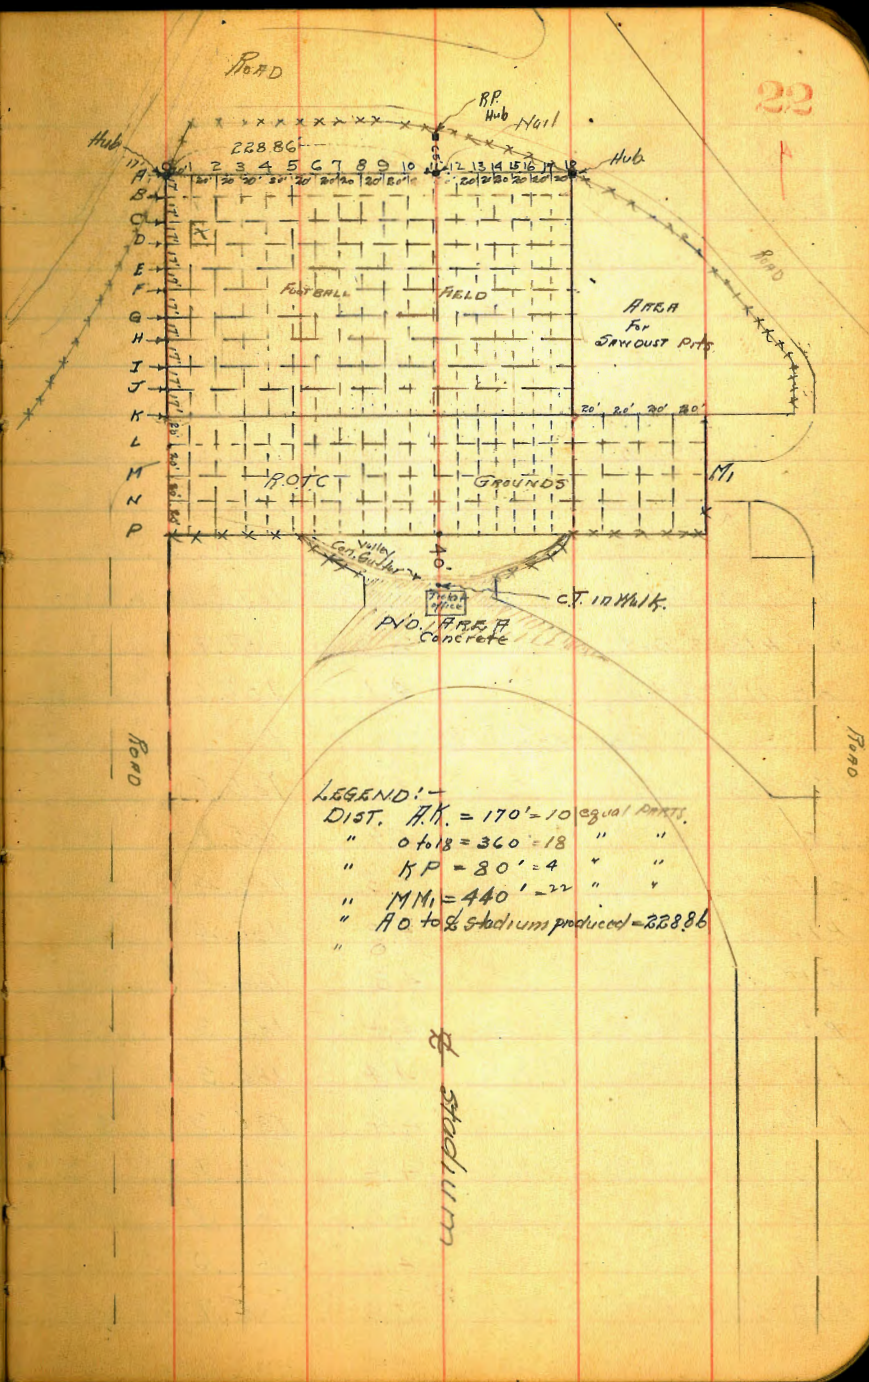 22
ROAD
R.P.
Hub
Nail
Hub
228.86'
Hub
17'
0 1 2 3 4 5 6 7 8 9 10 11 12 13 14 15 16 17 18
20' 20' 20' 20' 20' 20' 20' 20' 20' 20' 20' 20' 20' 20' 20'
A
B
C
D
E
F
G
H
I
J
K
L
M
N
P
17' 17' 17' 17' 17' 17' 17' 17' 17' 17'
20' 20' 20' 20'
X
FOOTBALL FIELD
ROAD
AREA
For
SAWDUST Pits
20' 20' 20' 20'
R.O.T.C GROUNDS
M1
Valley
Con. Gutter
40'
Ticket
office
C.T. in Walk.
PV'D. AREA
Concrete
ROAD
ROAD
LEGEND:-
DIST. A.K. = 170' = 10 equal PARTS.
" 0 to 18 = 360 = 18 " "
" KP = 80' = 4 " "
" MM1 = 440' = 22 " "
" A0 to ℄ stadium produced = 228.86
"
℄ stadium